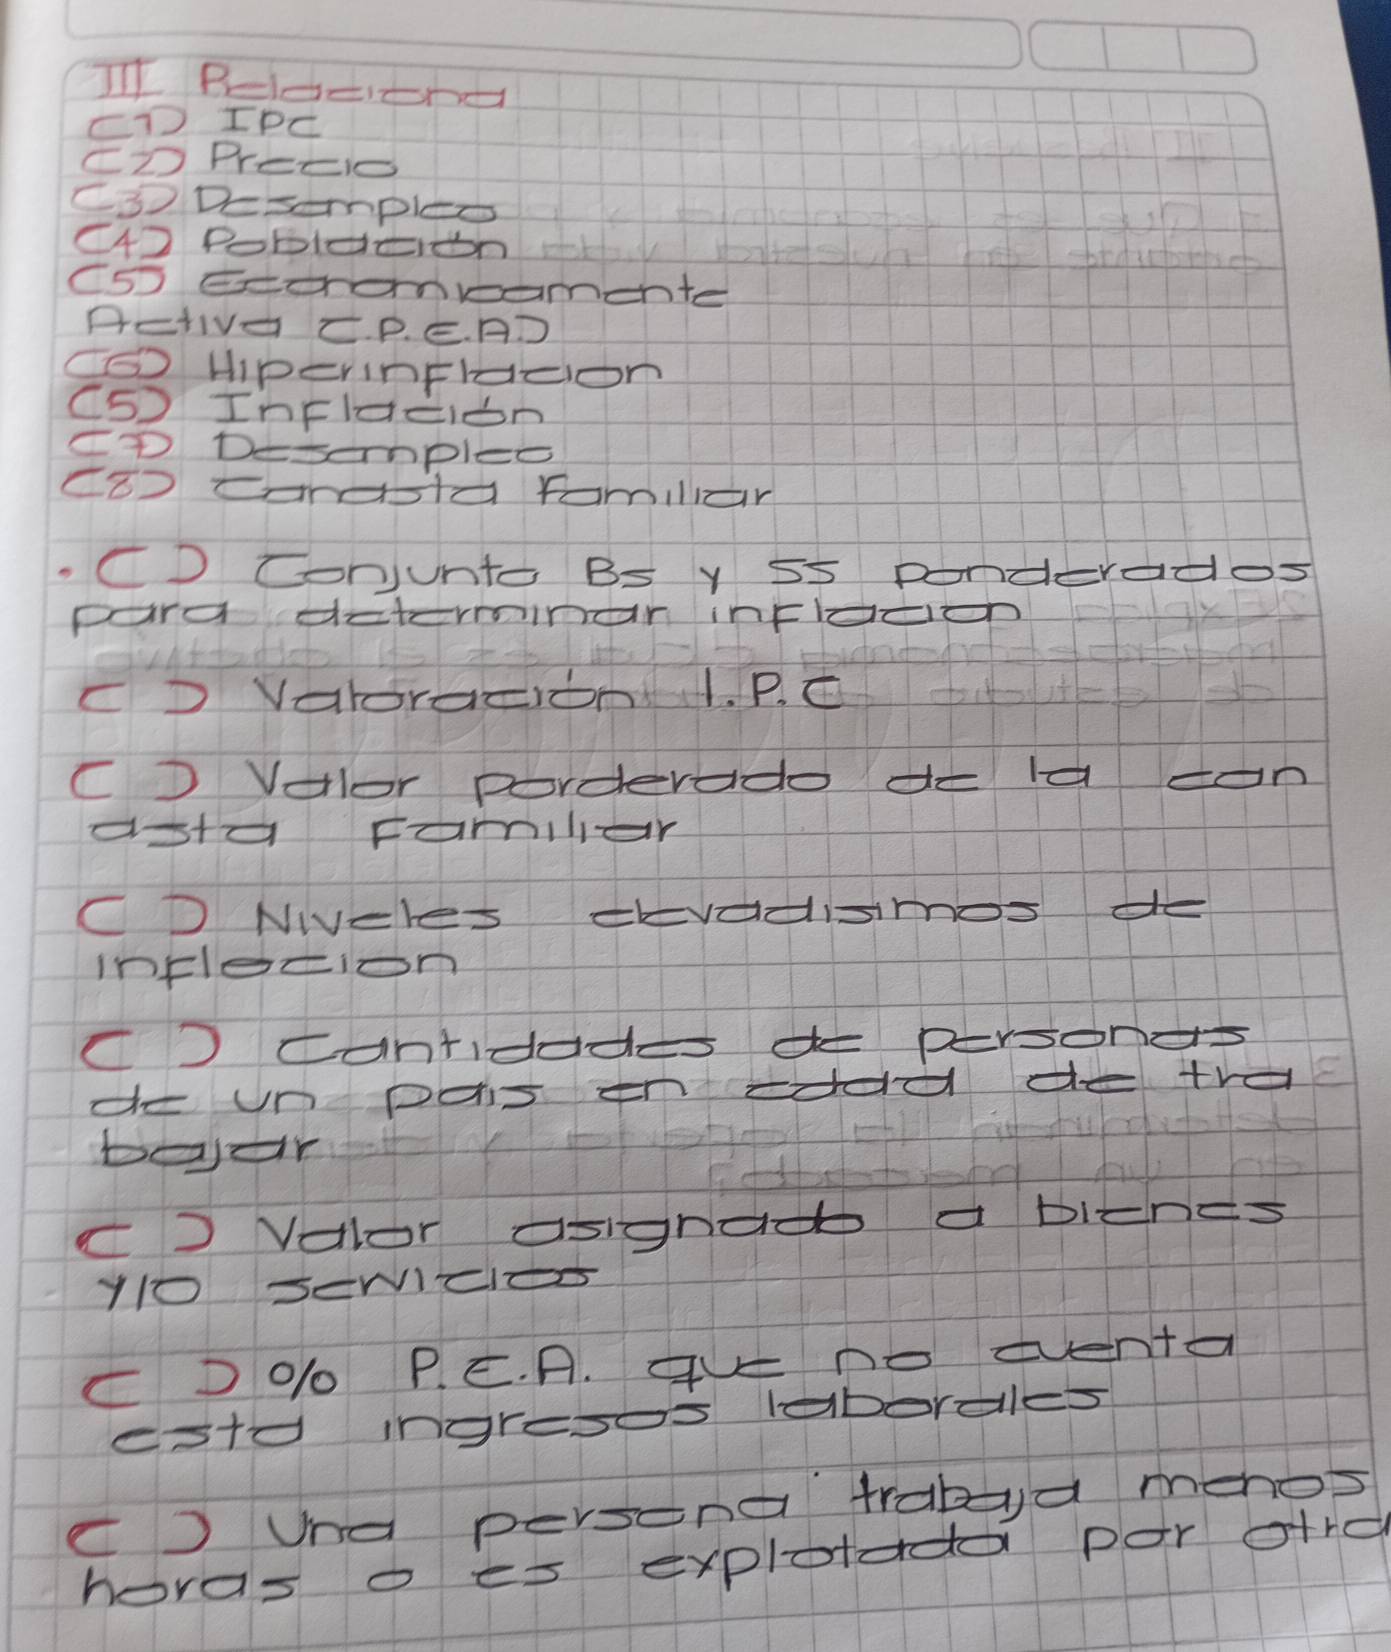 III Relaciona
(1) IPC
(2) Precio
(3) Desempleo
(4) Población
(5) Economicamente
Activa (P.E.A.)
(6) Hiperinflacion
(5) Inflación
(7) Desempleo
(8) Canasta Familiar
. ( ) Conjunto Bs y SS ponderados
para determinar inflacion
( ) Valoración I.P.C
( ) Valor porderado de la can
asta Familiar
( ) Niveles elevadisimos de
inflacion
( ) Cantidades de personas
de un pais en edad de tra
bajar
( ) Valor asignado a bienes
y/o servicios
( ) % P.E.A. que no cuenta
esta ingresos laborales
( ) Una persona trabaja menos
horas o es explotada por otra